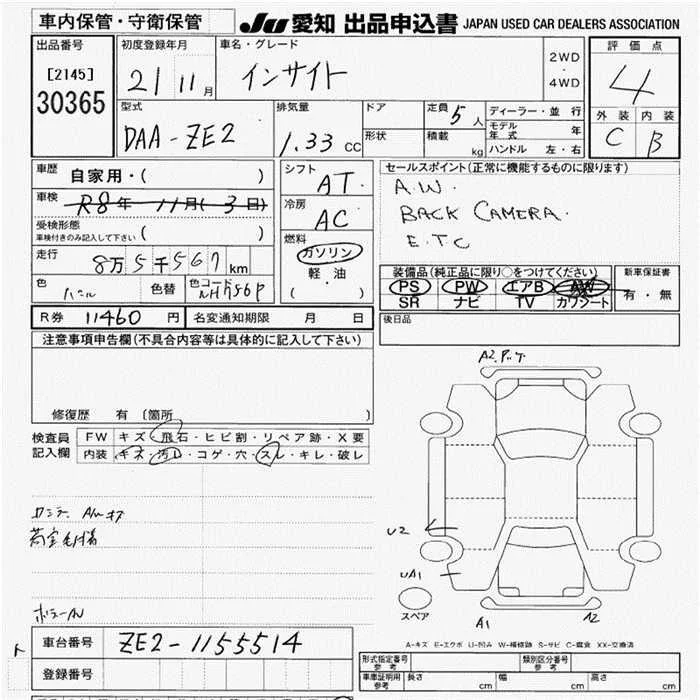 車内保管・守衛保管
JU 愛知 出品申込書 JAPAN USED CAR DEALERS ASSOCIATION
出品番号
[2145]
30365
初度登録年月
21 11月
車名・グレード
インサイト
2WD
・
4WD
評価点
4
外装 内装
C B
型式
DAA-ZE2
排気量
1.33 CC
ドア
形状
定員 5人
積載 kg
ディーラー・並行
モデル年式 年
ハンドル 左・右
車歴
自家用・( )
車検
R8年 11月(3日)
受検形態
車検付きのみ記入して下さい ( )
走行
8万5千567km
色
色替
色コード
シフト
AT
冷房
AC
燃料
ガソリン
軽・油
( )
セールスポイント(正常に機能するものに限ります)
A.W.
BACK CAMERA.
E.T.C
装備品(純正品に限り○をつけてください)
PS PW エアB AW
SR ナビ TV カワシート
新車保証書
有・無
後日品
R券 11460 円 名変通知期限 月 日
注意事項申告欄(不具合内容等は具体的に記入して下さい)
修復歴 有 〔箇所
検査員
記入欄
FW キズ・飛石・ヒビ割・リペア跡・X要
内装 キズ・汚レ・コゲ・穴・スレ・キレ・破レ
A2.
U2
UA1
スペア
A1
A2
A-キズ E-エクボ U-凹み W-補修跡 S-サビ C-腐食 XX-交換済
車台番号 ZE2-1155514
登録番号
形式指定番号
参考
類別区分番号
参考
車庫証明用
参考
長さ cm 幅 cm 高さ cm